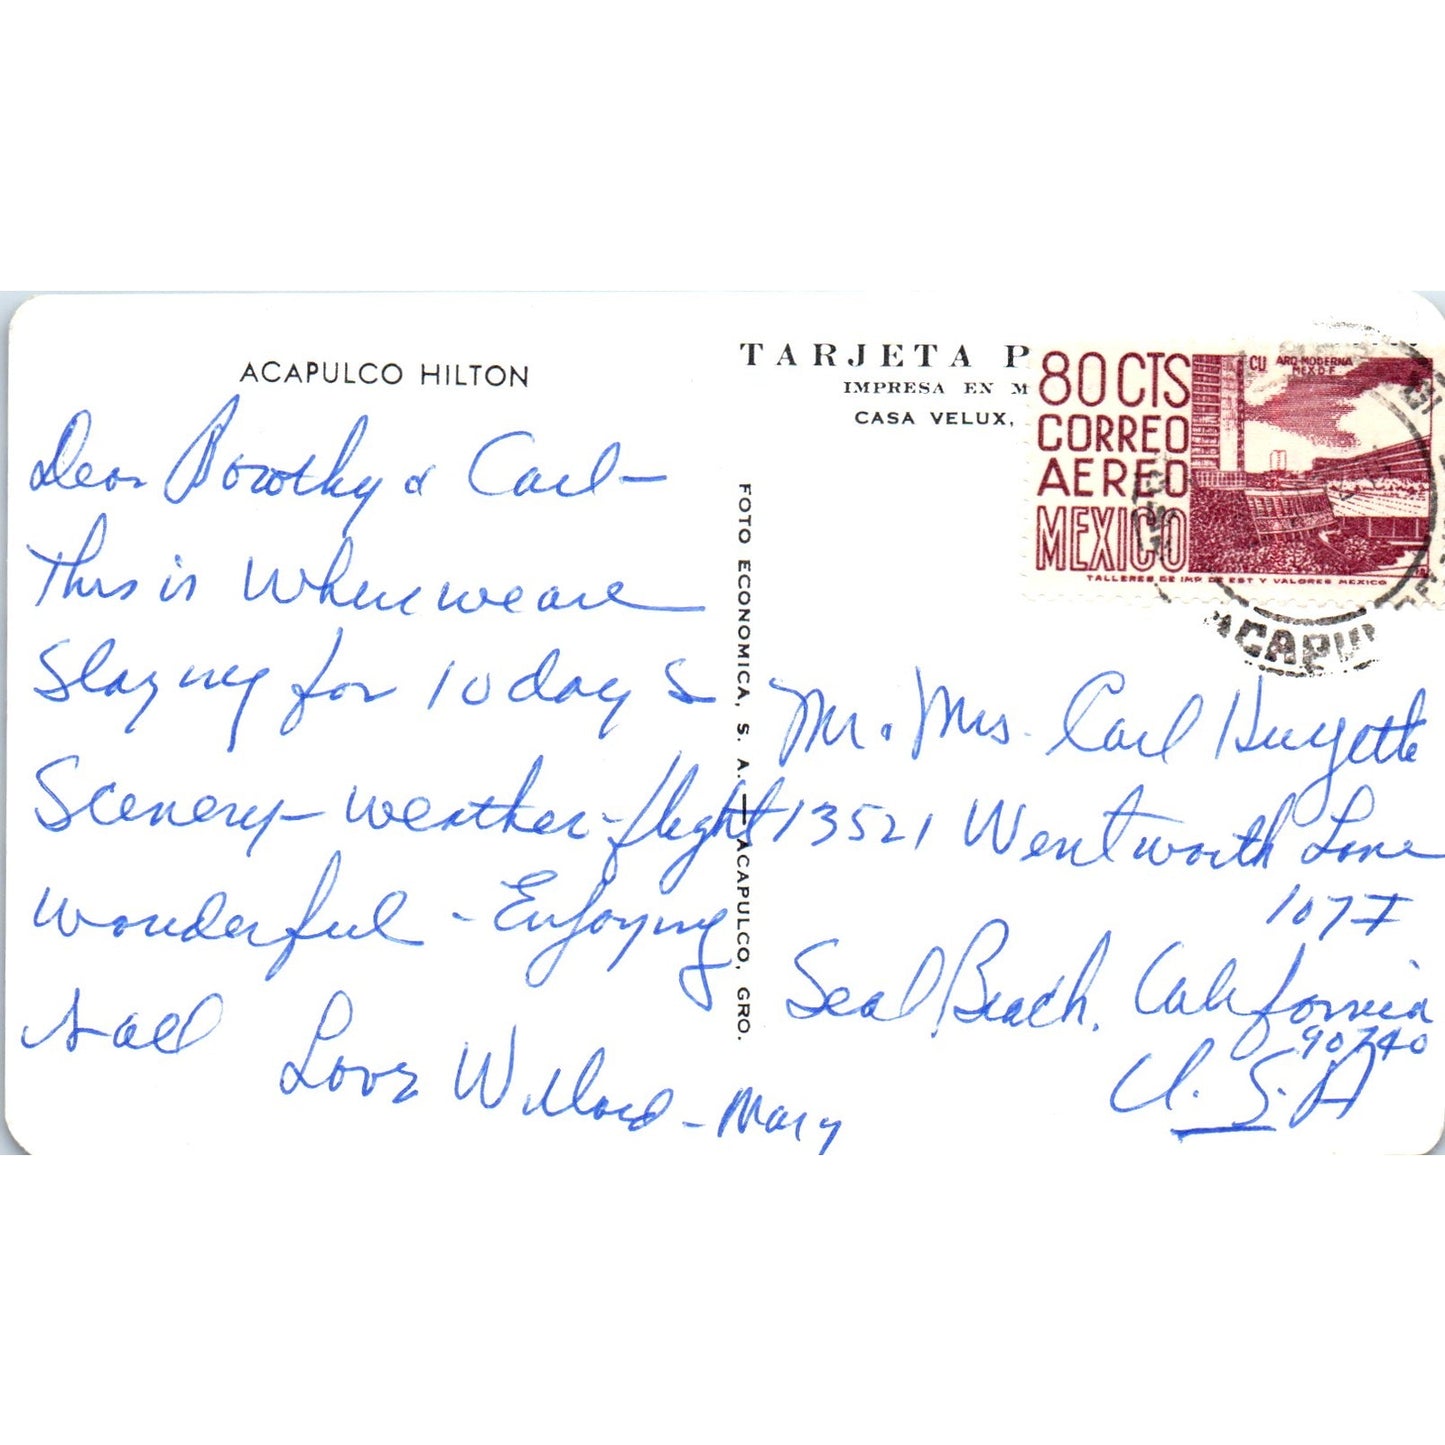 ACAPULCO HILTON
Dear Dorothy & Carl—
This is where we are
staying for 10 days
Scenery—weather—flight
wonderful - Enjoying
it all
Love Willard - Mary
FOTO ECONOMICA, S. A. — ACAPULCO, GRO.
TARJETA P
IMPRESA EN M
CASA VELUX,
80 CTS
CORREO
AEREO
MEXICO
CU ARQ-MODERNA
MEX.D.F.
TALLERES DE IMP. DE EST Y VALORES MEXICO
ACAPU
Mr. Mrs. Carl Huyette
13521 Wentworth Lane
107 I
Seal Beach, California
90740
U.S.A